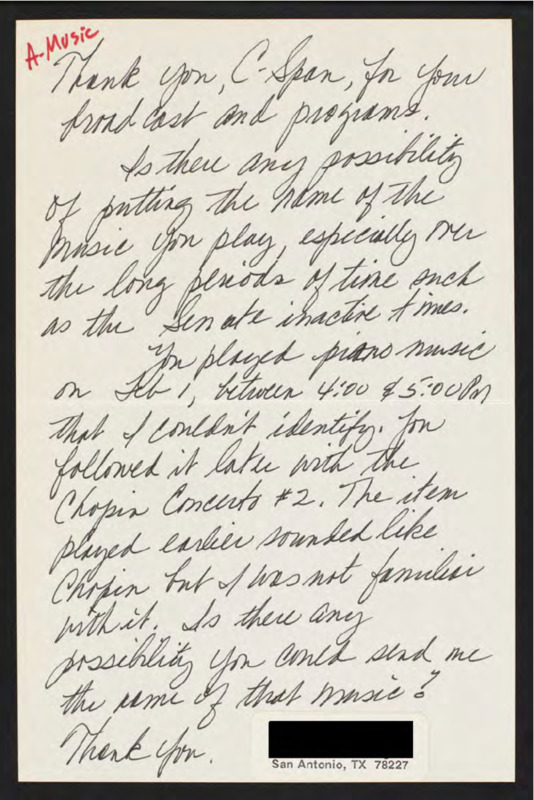 A-Music
Thank you, C-Span, for your
broadcast and programs.
Is there any possibility
of putting the name of the
music you play, especially over
the long periods of time such
as the Senate inactive times.
You played piano music
on Feb 1, between 4:00 & 5:00 PM
that I couldn't identify. You
followed it later with the
Chopin Concerto #2. The item
played earlier sounded like
Chopin but I was not familiar
with it. Is there any
possibility you could send me
the name of that music?
Thank you.
San Antonio, TX 78227